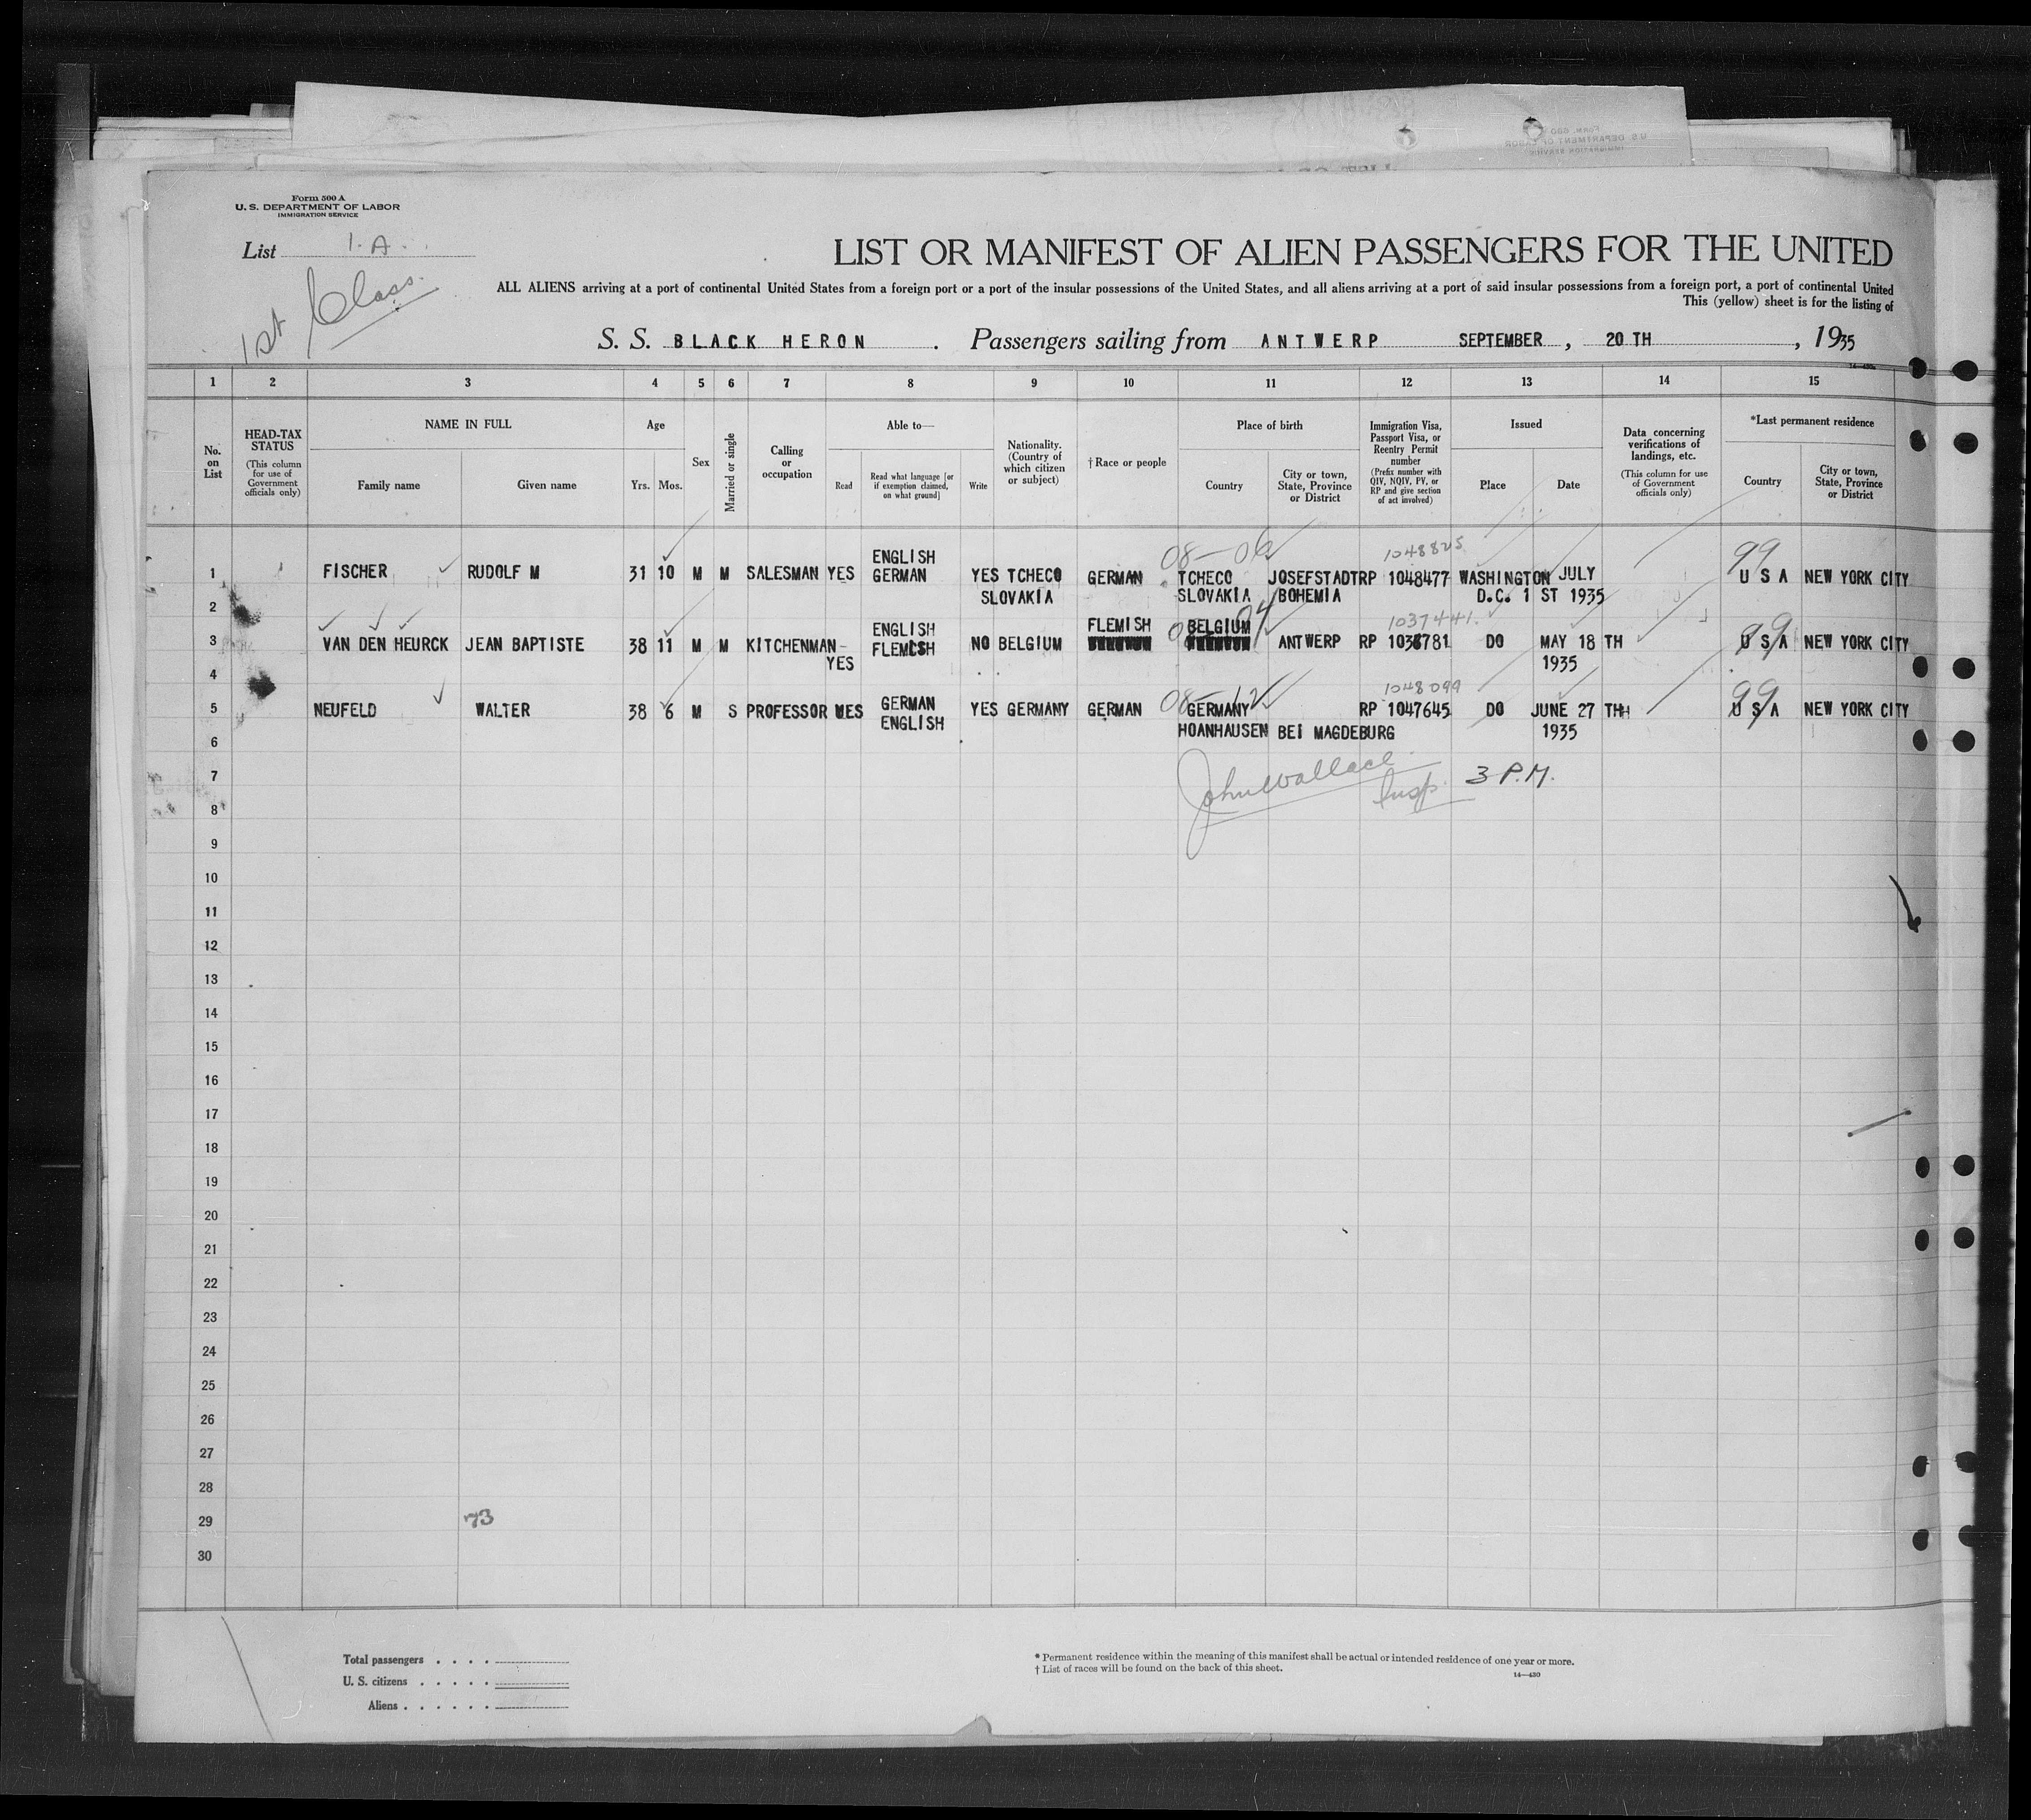 Form 500 A
U. S. DEPARTMENT OF LABOR
IMMIGRATION SERVICE
List 1. A.
1st Class.
LIST OR MANIFEST OF ALIEN PASSENGERS FOR THE UNITED
ALL ALIENS arriving at a port of continental United States from a foreign port or a port of the insular possessions of the United States, and all aliens arriving at a port of said insular possessions from a foreign port, a port of continental United
This (yellow) sheet is for the listing of
S. S. BLACK HERON . Passengers sailing from ANTWERP SEPTEMBER , 20 TH , 1935
1 2 3 4 5 6 7 8 9 10 11 12 13 14 15
No. on List
HEAD-TAX STATUS (This column for use of Government officials only)
NAME IN FULL
Family name Given name
Age
Yrs. Mos.
Sex
Married or single
Calling or occupation
Able to—
Read
Read what language [or if exemption claimed, on what ground]
Write
Nationality. (Country of which citizen or subject)
† Race or people
Place of birth
Country
City or town, State, Province or District
Immigration Visa, Passport Visa, or Reentry Permit number
(Prefix number with QIV, NQIV, PV, or RP and give section of act involved)
Issued
Place Date
Data concerning verifications of landings, etc.
(This column for use of Government officials only)
*Last permanent residence
Country
City or town, State, Province or District
08-06 1048825 99
ENGLISH
1 FISCHER RUDOLF M 31 10 M M SALESMAN YES GERMAN YES TCHECO GERMAN TCHECO JOSEFSTADT RP 1048477 WASHINGTON JULY U S A NEW YORK CITY
SLOVAKIA SLOVAKIA BOHEMIA D.C. 1 ST 1935
2
04 1037441. 99
ENGLISH FLEMISH BELGIUM
3 VAN DEN HEURCK JEAN BAPTISTE 38 11 M M KITCHENMAN- FLEMISH NO BELGIUM ANTWERP RP DO MAY 18 TH U S A NEW YORK CITY
YES 1935
4
08-12 1048099 99
GERMAN
5 NEUFELD WALTER 38 6 M S PROFESSOR YES ENGLISH YES GERMANY GERMAN GERMANY RP 1047645 DO JUNE 27 TH U S A NEW YORK CITY
HOANHAUSEN BEI MAGDEBURG 1935
6
7 John Wallace Insp. 3 P.M.
8
9
10
11
12
13
14
15
16
17
18
19
20
21
22
23
24
25
26
27
28
29 73
30
Total passengers . . . .
U. S. citizens . . . . .
Aliens . . . . . .
* Permanent residence within the meaning of this manifest shall be actual or intended residence of one year or more.
† List of races will be found on the back of this sheet.
14—430